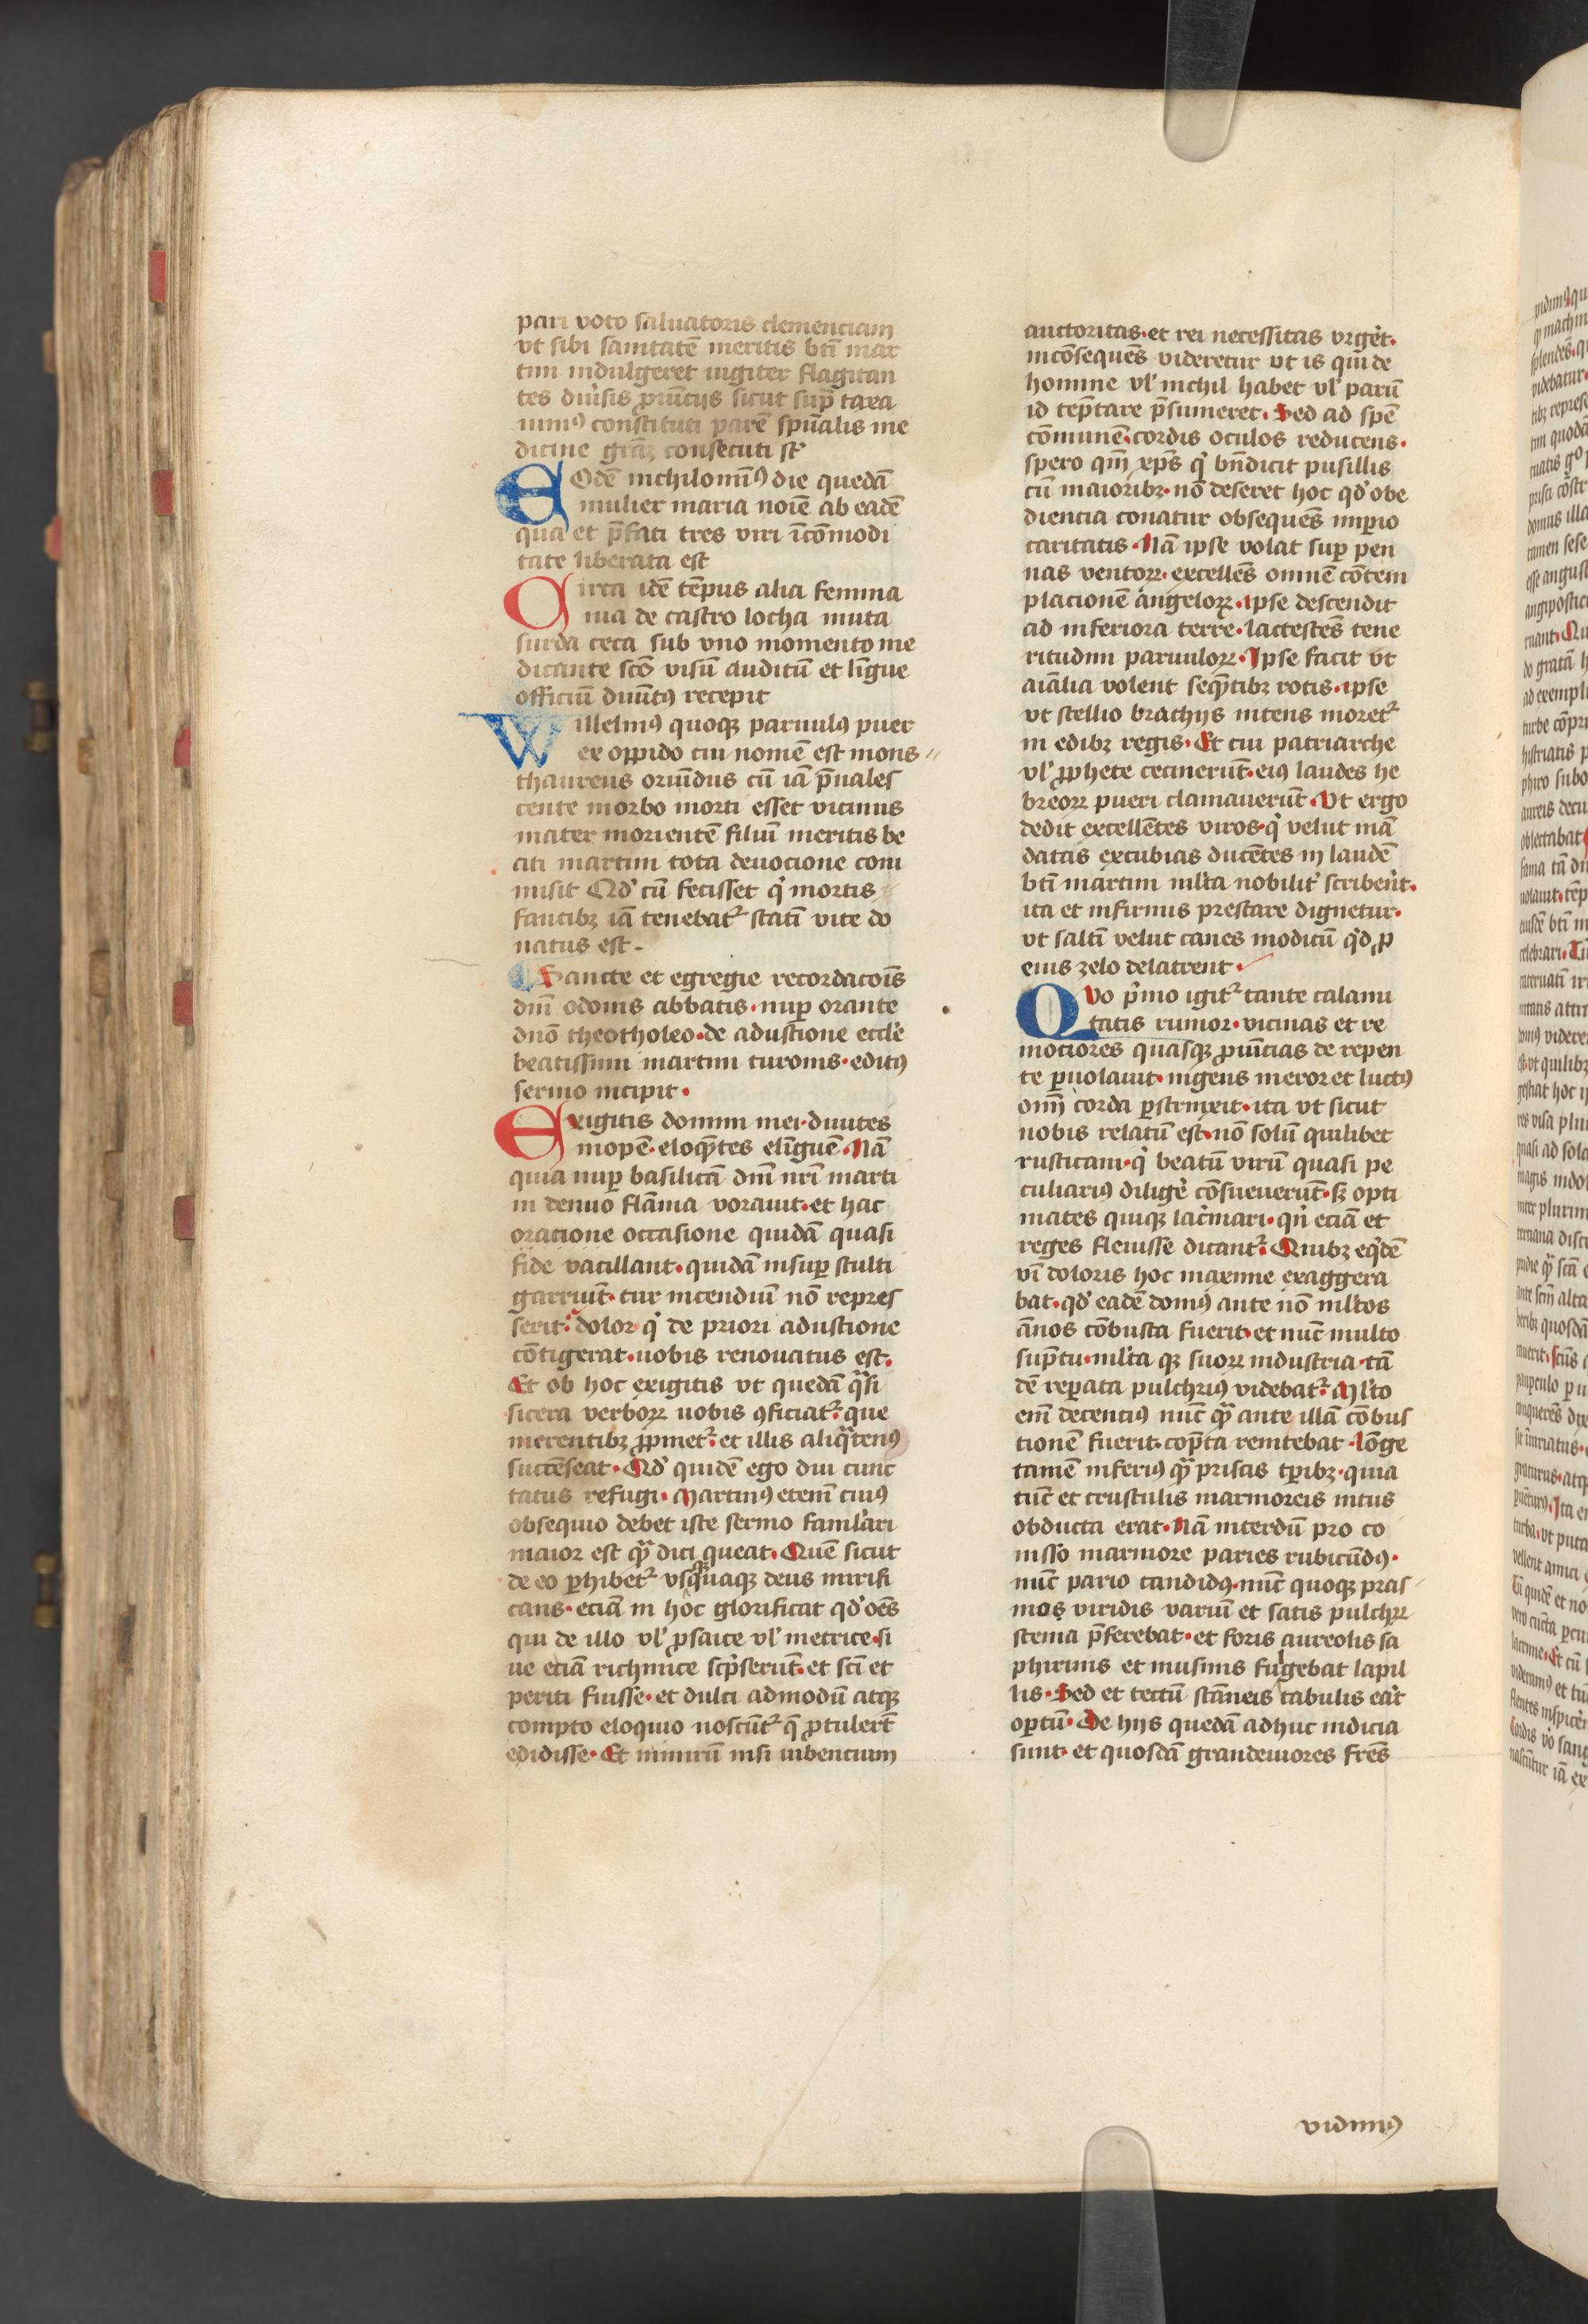 pari voto saluatoris clemenciam
vt sibi sanitatē meritis bt̄i mar
tini indulgeret iugiter flagitan
tes diuīsis ꝓuīcijs sicut sup̄ taxa
uimꝰ constituti parē spūalis me
dicine gr̄aʒ consecuti st̄
EOdē nichilominꝰ die quedā
mulier maria noīe ab eadē
qua et p̄fati tres viri īcōmodi
tate liberata est
Circa idē tēpus alia femina
nia de castro locha muta
surda ceca sub vno momento me
dicante scō visū auditū et līgue
officiū diuītꝰ recepit
Willelmꝰ quoqꝫ paruulꝰ puer
ex oppido cui nomē est mons
thaureus oriūdus cū iā p̄uales
cente morbo morti esset vicinus
mater morientē filiū meritis be
ati martini tota deuocione com
misit Qd' cū fecisset q' mortis
faucibꝫ iā tenebat᷑ statī vite do
natus est
Sancte et egregie recordacōis
dn̄i odonis abbatis· nup̱ orante
dn̄o theotholeo·de adustione eccl'e
beatissimi martini turonis·editꝰ
sermo incipit·
Exigitis domini mei·diuites
inopē·eloq̄ntes elīguē·Nā
quia nup̱ basilicā dn̄i nr̄i marti
ni denuo flāma vorauit·et hac
oratione occasione quidā quasi
fide vacillant·quidā insup̱ stulti
garriūt·cur incendiū nō repres
serit·dolor q' de priori adustione
cōtigerat·nobis renouatus est·
Et ob hoc exigitis vt quedā q̄si
sicera verboꝝ nobis ꝯficiat᷑·que
merentibꝫ ꝓpinet᷑·et illis aliq̄tenꝰ
succēseat·Qd' quidē ego diu cunc
tatus refugi·Martinꝰ etenī cuiꝰ
obsequio debet iste sermo famil'ari
maior est qꝫ dici queat·Quē sicut
de eo ꝑhibet᷑ vsq̄quaqꝫ deus mirifi
cans·eciā in hoc glorificat qd' oēs
qui de illo vl' ꝓsaice vl' metrice·si
ue eciā richmice sc̄pserūt·et sc̄i et
periti fuisse·et dulci admodū atqꝫ
compto eloquio noscūt᷑ q̄ ꝓtulerīt
edidisse·Et nimirū nisi iubencium
auctoritas·et rei necessitas vrgēt·
incōsequēs videretur vt is qui de
homine vl' nichil habet vl' parū
id tēptare p̄sumeret·Sed ad spē
cōmunē·cordis oculos reducens·
spero qm̄ xp̄s q' bn̄dicit pusillis
cū maioribꝫ·nō deseret hoc qd' obe
diencia conatur obsequēs imꝑio
caritatis·Nā ipse volat sup̱ pen
nas ventoꝝ·excellēs omnē cōtem
placionē angeloꝝ·ipse descendit
ad inferiora terre·lactestēs tene
ritudini paruuloꝝ·Ipse facit vt
aīalia volent seq̄ntibꝫ rotis·ipse
vt stellio brachijs nitens moret᷑
in edibꝫ regis·Et cui patriarche
vl' ꝓphete cecinerūt·eiꝰ laudes he
breoꝝ pueri clamauerūt·Vt ergo
dedit excellētes viros·q' velut mā
datas excubias ducētes in laudē
bt̄i martini ml'ta nobilit' scriberēt·
ita et infirmis prestare dignetur·
vt saltī velut canes modicū qd' ꝓ
eius zelo delatrent·
QVo p'mo igit᷑ tante calami
tatis rumor·vicinas et re
mociores quasqꝫ ꝓuīcias de repen
te ꝑuolauit·ingens meror et luctꝰ
oīm corda ꝑstrinxit·ita vt sicut
nobis relatū est·nō solū quilibet
rusticani·q' beatū virū quasi pe
culiariꝰ diligē cōsueuerūt·sꝫ opti
mates quiqꝫ lac'mari·qn̄ eciā et
reges fleuisse dicant᷑·Quibꝫ eq'dē
vī doloris hoc maxime exaggera
bat·qd' eadē domꝰ ante nō ml'tos
ānos cōbusta fuerit·et nūc multo
sup̄tu·ml'ta qꝫ suoꝝ industria·tā
dē reꝑata pulchriꝰ videbat᷑·Ml'to
enī decenciꝰ nūc qꝫ ante illā cōbus
tionē fuerit·coꝑta renitebat·Lōge
tamē inferiꝰ qꝫ priscis tꝑibꝫ·quia
tūc et crustulis marmoreis intus
obducta erat·Nā interdū pro co
nisso marmore paries rubicūdꝰ·
nūc pario candidꝰ·nūc quoqꝫ pras
mos viridis variū et satis pulchꝝ
stema p̄ferebat·et foris aureolis sa
phirinis et musinis fulgebat lapil
lis·Sed et tectū stāneis tabulis erat
oꝑtū·De hijs quedā adhuc indicia
sunt·et quosdā grandeuiores fr̄es
vidimꝰ